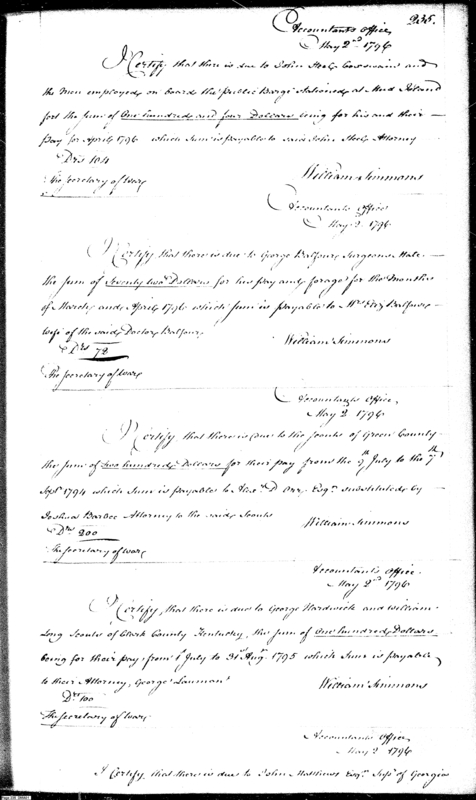 235.
Accountants Office
May 2nd 1796
I Certify that there is due to John Hale Coxswain and
the Men employed on board the Public Barge stationed at Mud Island
fort the Sum of One hundred and four Dollars being for his and their
Pay for April 1796 which Sum is payable to said John Attorney
Drs 104
The Secretary of War
William Simmons
Accountants Office
May 2 1796
I Certify that there is due to George Balfour Surgeons Mate
the sum of Seventy two Dollars for his pay and forage for the Months
of March and April 1796 which sum is payable to Mrs Balfour
Wife of the said Doctor Balfour
Drs 72
William Simmons
The Secretary of War
Accountants Office
May 2 1796
I Certify that there is due to the Scouts of Green County
the sum of two hundred Dollars for their pay from the 7th July to the 7th
Sept 1794 which sum is payable to Alexr D Orr Esqr substituted by
Joshua Barbee Attorney to the said Scouts
Drs 200
William Simmons
The Secretary of War
Accountants Office
May 2nd 1796
I Certify, that there is due to George Hardwick and William
Long Scouts of Clark County Kentucky, the sum of One hundred Dollars
being for their pay from 1st July to 31st Augt 1795 which Sum is payable
to their Attorney, George Lauman
Drs 100
William Simmons
The Secretary of War
Accountants Office
May 2 1796
I Certify that there is due to John Matthews Esqr of Georgia